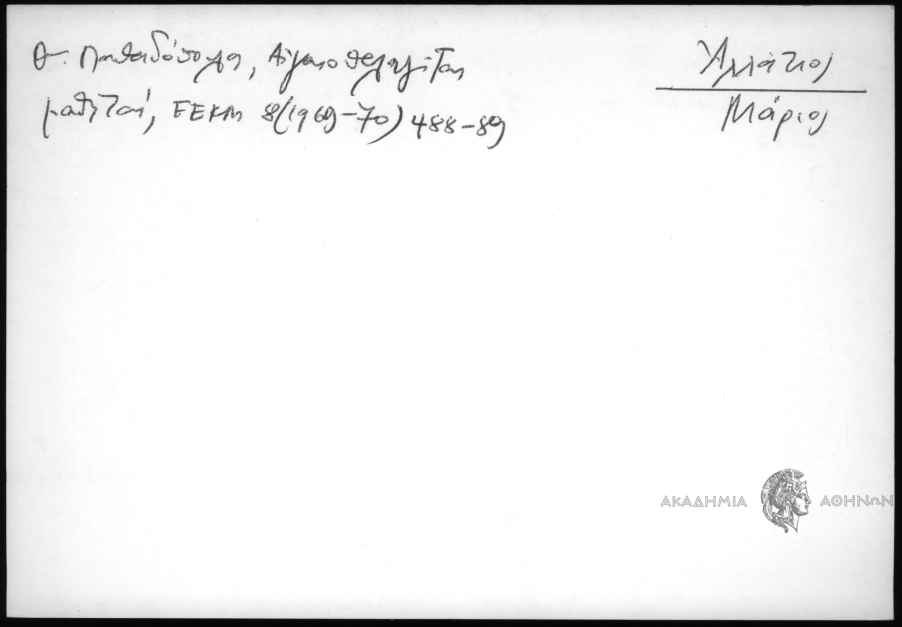 Θ. Παπαδόπουλου, Αἰγαιοπελαγῖται
μαθηταί, ΕΕΚΜ 8(1969-70) 488-89
Ἀλλάτιος
Μάριος
ΑΚΑΔΗΜΙΑ ΑΘΗΝΩΝ